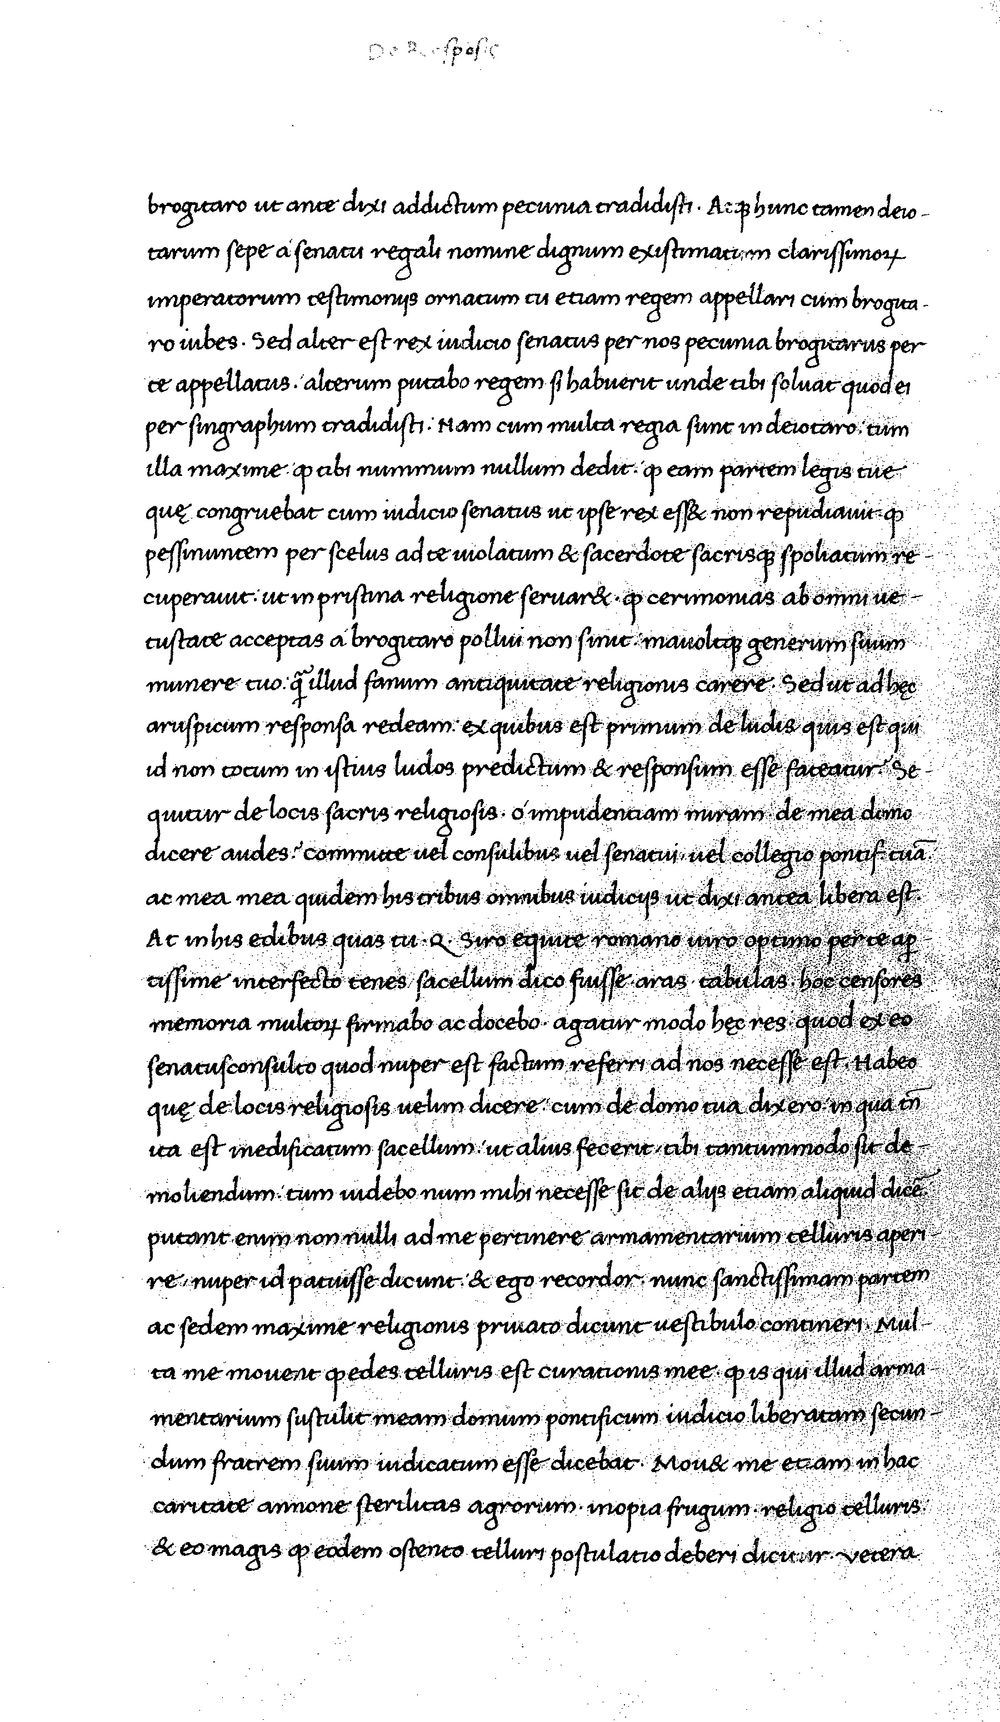 De Resposis
brogitaro ut ante dixi addictum pecunia tradidisti. Atqꝫ hunc tamen deio-
tarum sepe a senatu regali nomine dignum existimatum clarissimoꝝ
imperatorum testimonijs ornatum tu etiam regem appellari cum brogita-
ro iubes. Sed alter est rex iudicio senatus per nos pecunia brogitarus per
te appellatus. alterum putabo regem si habuerit unde tibi soluat quod ei
per singraphum tradidisti. Nam cum multa regia sunt in deiotaro. tum
illa maxime ꝙ tibi nummum nullum dedit. ꝙ eam partem legis tue
quę congruebat cum iudicio senatus ut ipse rex ess& non repudiauit. ꝙ
pessinuntem per scelus ad te uiolatum & sacerdote sacrisqꝫ spoliatum re-
cuperauit. ut in pristina religione seruar&. ꝙ cerimonias ab omni ue-
tustate acceptas a brogitaro pollui non sinit. mauoltqꝫ generum suum
munere tuo. ꝗ̃ illud fanum antiquitate religionis carere. Sed ut ad hęc
aruspicum responsa redeam. ex quibus est primum de ludis quis est qui
id non totum in istius ludos predictum & responsum esse fateatur. Se-
quitur de locis sacris religiosis. o impudentiam miram. de mea domo
dicere audes. committe uel consulibus uel senatui. uel collegio pontif. tuā.
ac mea mea quidem his tribus omnibus iudicijs ut dixi antea libera est.
At in his edibus quas tu. Q. Siro equite romano uiro optimo per te ap-
tissime interfecto tenes. sacellum dico fuisse. aras. tabulas. hoc censores
memoria multoꝝ firmabo ac docebo. agatur modo hęc res. quod ex eo
senatusconsulto quod nuper est factum referri ad nos necesse est. Habeo
quę de locis religiosis uelim dicere. cum de domo tua dixero. in qua tn̄
ita est inedificatum sacellum. ut alius fecerit. tibi tantummodo sit de-
moliendum. tum uidebo num mihi necesse sit de alijs etiam aliquid dicē.
putant enim non nulli ad me pertinere armamentarium telluris aperi-
re. nuper id patuisse dicunt. & ego recordor. nunc sanctissimam partem
ac sedem maxime religionis priuato dicunt uestibulo contineri. Mul-
ta me mouent ꝙ edes telluris est curationis mee. ꝙ is qui illud arma-
mentarium sustulit meam domum pontificum iudicio liberatam secun-
dum fratrem suum iudicatum esse dicebat. Mou& me etiam in hac
caritate annone sterilitas agrorum. inopia frugum. religio telluris.
& eo magis ꝙ eodem ostento telluri postulatio deberi dicitur. Vetera